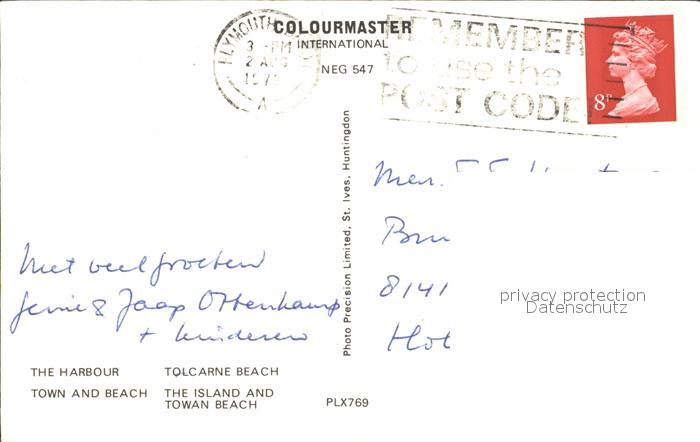 COLOURMASTER
INTERNATIONAL
NEG 547
PLYMOUTH
3 - PM
2 AUG
197
A
REMEMBER
to use the
POST CODE
8P
Photo Precision Limited, St. Ives, Huntingdon
Met veel groeten
Jennie & Jaap Ottenkamp
+ kinderen
Men.
8141
privacy protection
Datenschutz
THE HARBOUR TOLCARNE BEACH
TOWN AND BEACH THE ISLAND AND
TOWAN BEACH
PLX769